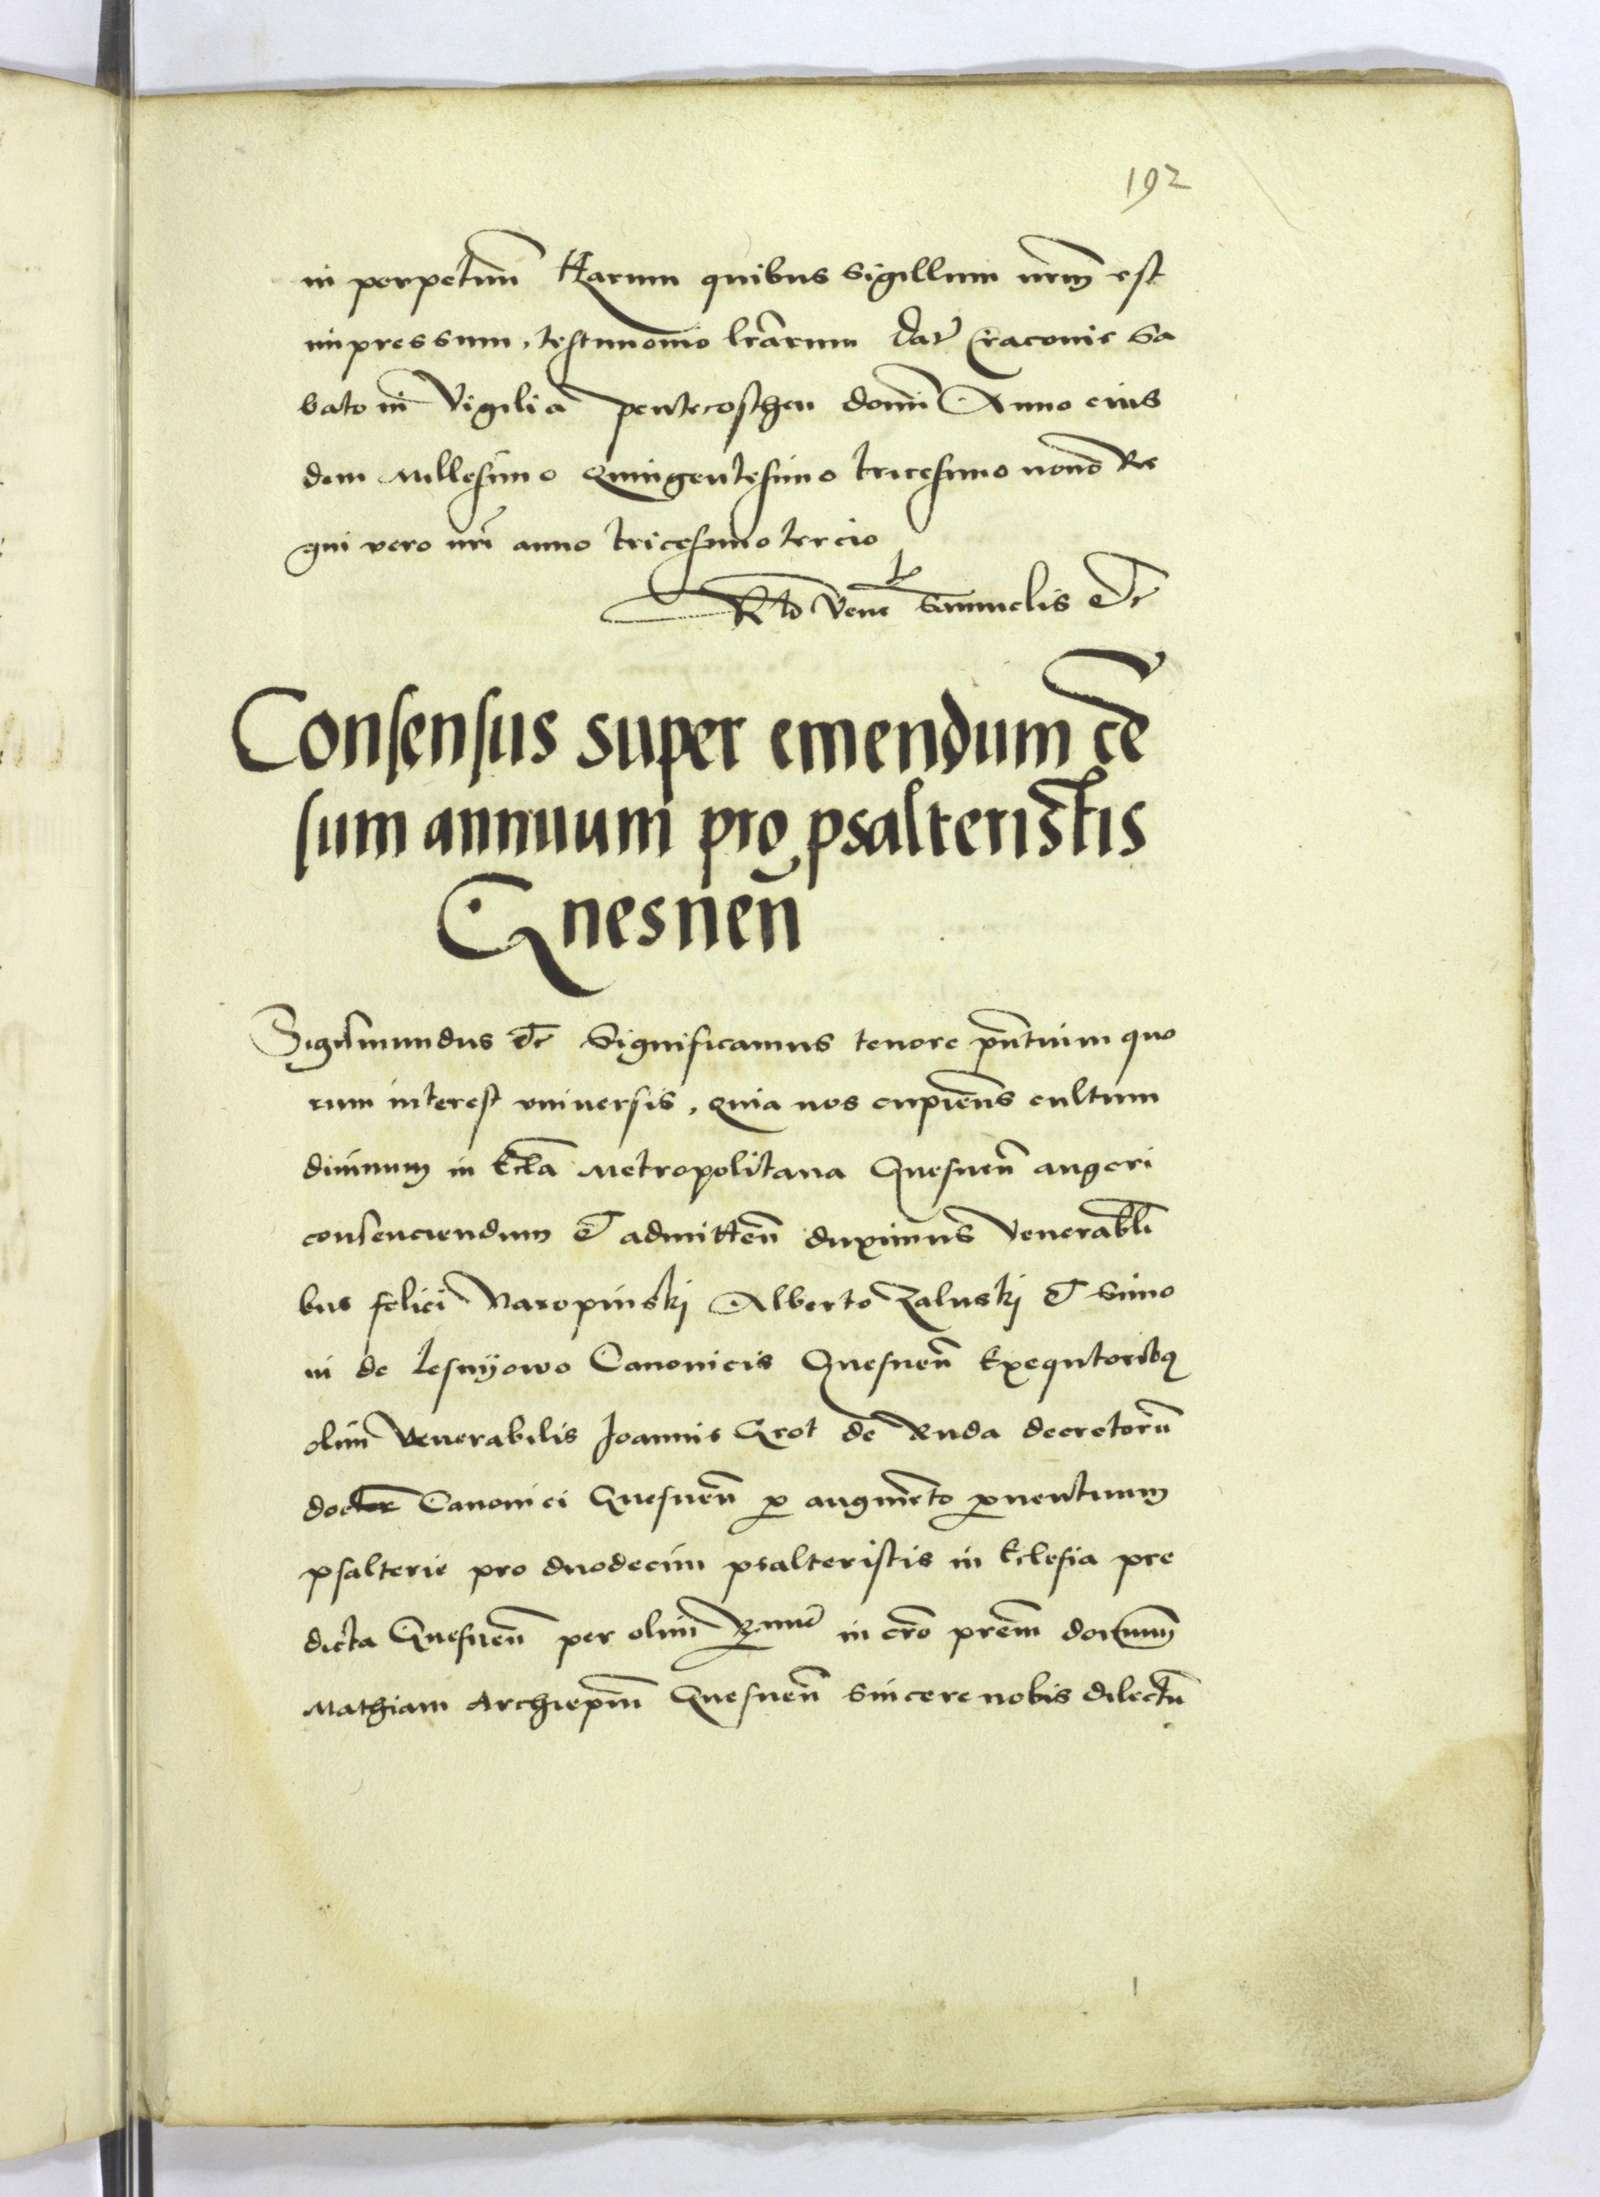 192
in perpetuū Harum quibus Sigillum nrm̄ est
impressum, testimonio lrārum Dat̄ Cracovie Sa
bato in Vigilia pentecosthen domī Anno eius
dem Millesimo Quingentesimo tricesimo nono Re
gni vero nrī anno tricesimo tercio
Rlō Vene Samuelis Etc
Consensus super emendum cē
sum annuum pro psalteristis
Gnesnen̄
Sigismundus Etc Significamus tenore pn̄tium quo
rum interest universis, quia nos cupien̄s cultum
divinum in Eccla Metropolitana Gnesnen̄ augeri
consenciendum Et admitten̄ duximus Venerabili
bus felici Naropinski Alberto Zaluski Et Simo
ni de lesnyowo Canonicis Gnesnen̄ Exequtoribus
olim Venerabilis Joannis Grot de Ruda decretorū
doctor̄ Canonici Gnesnen̄ p augmēto proventuum
psalterie pro duodecim psalteristis in Eclesia pre
dicta Gnesnen̄ per olim Rmū in cro prem̄ dominum
Mathiam Archiepm̄ Gnesnen̄ Sincere nobis dilectū